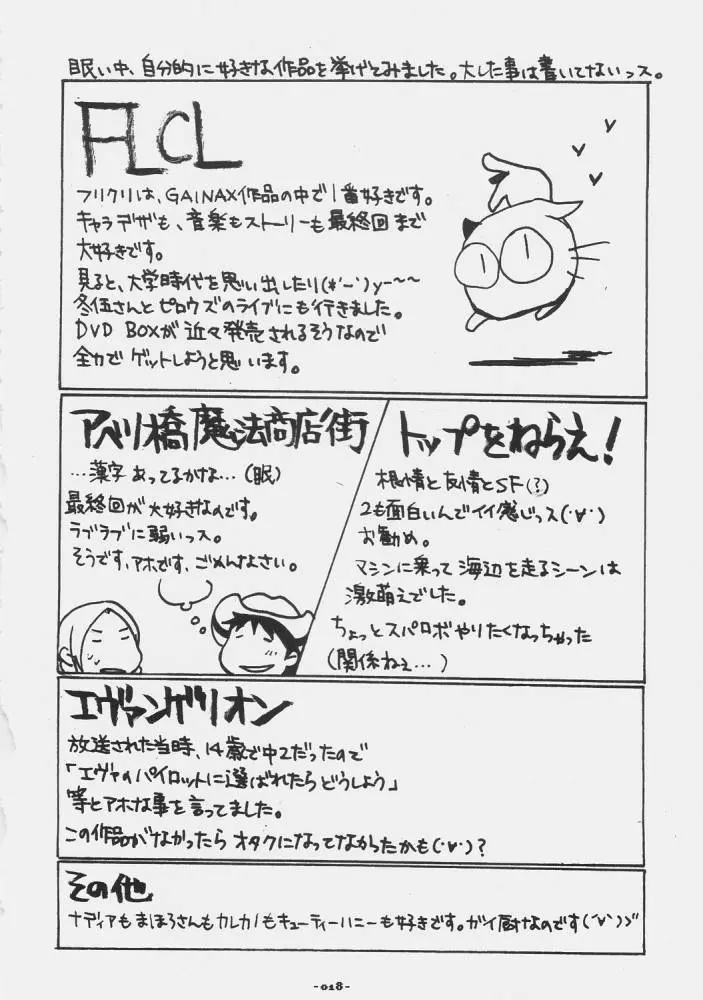 眠い中、自分的に好きな作品を挙げてみました。大した事は書いてないっス。
FLCL
フリクリは、GAINAX作品の中で1番好きです。
キャラデザも、音楽もストーリーも最終回まで
大好きです。
見ると、大学時代を思い出したり(*'ー')y-~~
冬伍さんとピロウズのライブにも行きました。
DVD BOXが近々発売されるそうなので
全力でゲットしようと思います。
アベノ橋魔法商店街
…漢字あってるかな…(眠)
最終回が大好きなのです。
ラブラブに弱いっス。
そうです、アホです、ごめんなさい。
トップをねらえ!
根情と友情とSF(?)
2も面白いんでイイ感じっス(・∀・)
お勧め。
マシンに乗って海辺を走るシーンは
激萌えでした。
ちょっとスパロボやりたくなっちゃった
(関係ねぇ…)
エヴァンゲリオン
放送された当時、14歳で中2だったので
「エヴァのパイロットに選ばれたらどうしよう」
等とアホな事を言ってました。
この作品がなかったらオタクになってなかったかも(・∀・)?
その他
ナディアもまほろさんもカレカノもキューティーハニーも好きです。ガイ厨なのです(´∀`)ゞ
-018-